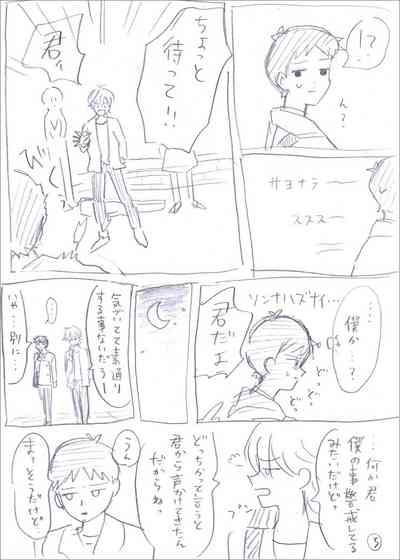 !?
ん?
サヨナラ〜
ススス〜
ちょっと
待って!!
君ッ
…
僕か…?
ソンナハズナイ…
どっ
どっ
どっ
君だよ
気づいてて素通り
する事ないだろー
…
いや…別に…
…何か君
僕の事警戒してる
みたいだけど
どっちかって言うと
君から声かけてきたん
だからね?
うん
まーそうだけど…
5